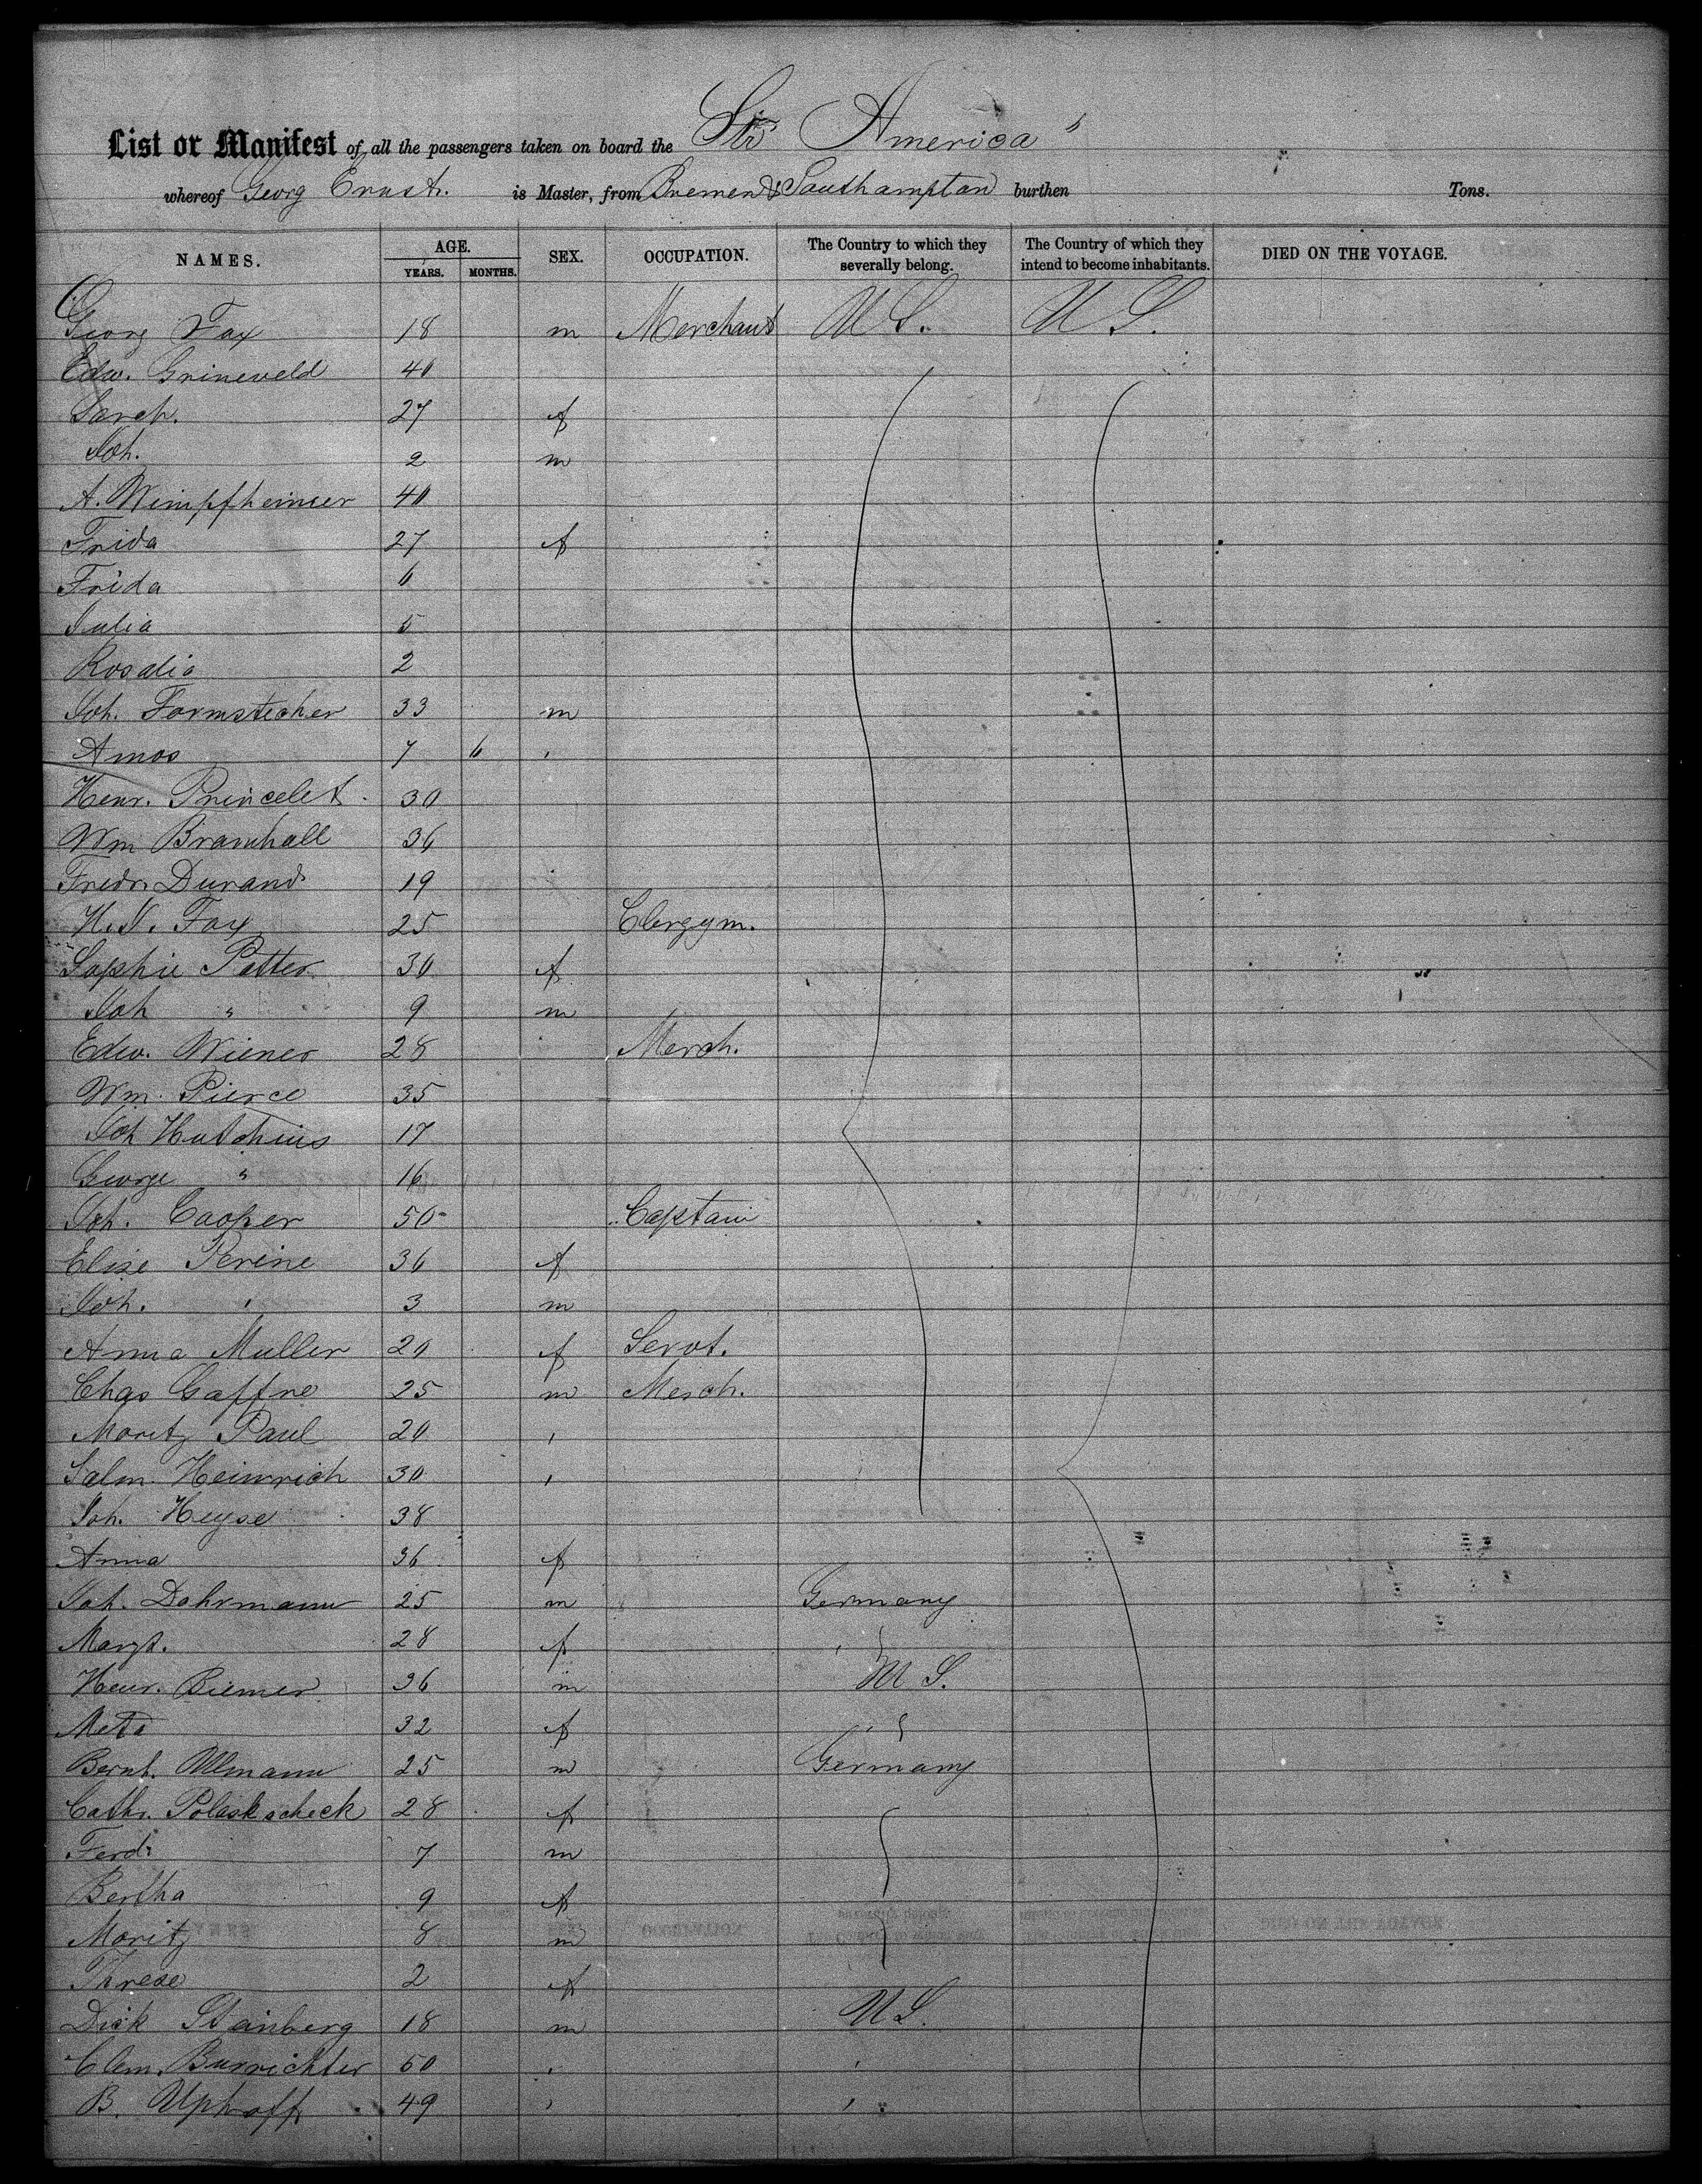 List or Manifest of all the passengers taken on board the Str America"
whereof Georg Ernst. is Master, from Bremen & Southampton burthen Tons.
NAMES. AGE. YEARS. MONTHS. SEX. OCCUPATION. The Country to which they severally belong. The Country of which they intend to become inhabitants. DIED ON THE VOYAGE.
Georg Fox 18 m Merchant U S. U S.
Edw. Grineveld 40
Sarah. 27 f
Joh. 2 m
A. Wimpfheimer 40
Frida 27 f
Frida 6
Julia 5
Rosalia 2
Joh. Formstecher 33 m
Amos 7 6 "
Henr. Princelet 30
Wm Bramhall 36
Fredr. Durand 19
H. N. Fox 25 Clergym.
Sophie Potter 30 f
Joh " 9 m
Edw. Wiener 28 Merch.
Wm. Pierce 35
Joh Hutchins 17
George " 16
Joh. Cooper 50 Captain
Elise Perine 36 f
Joh. " 3 m
Anna Muller 20 f Servt.
Chas Gaffne 25 m Merch.
Moritz Paul 20 "
Salm. Heinrich 30 "
Joh. Heyse 38
Anna 36 f
Joh. Dohrmann 25 m Germany
Margt. 28 f "
Henr. Biemer 36 m U S.
Meta 32 f "
Bernh. Ullmann 25 m Germany
Cathr. Polaskscheck 28 f
Ferd. 7 m
Bertha 9 f
Moritz 8 m
Threse 2 f
Dick Stainberg 18 m U S.
Clem. Burrichter 50 " "
B. Uphoff 49 " "